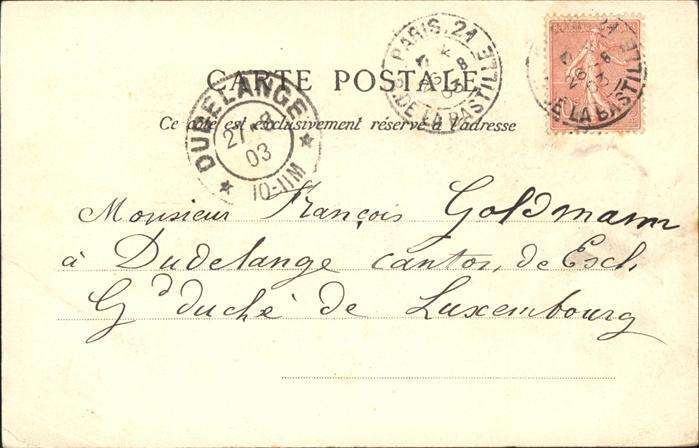 CARTE POSTALE
Ce côté est exclusivement réservé à l'adresse
PARIS. 21
R. DE LA BASTILLE
21
E LA BASTILLE
DUDELANGE
27 8
03
10-11M
Monsieur François Goldmann
à Dudelange canton, de Esch
Gd duché de Luxembourg